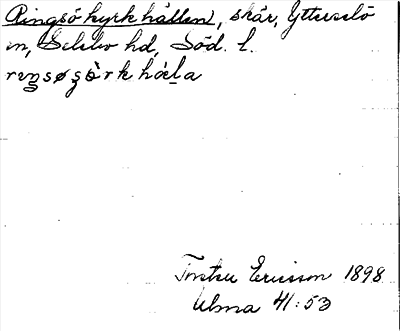 Ringsö kyrkhällen, skär, Ytterselö
sn, Selebo hd, Söd. l.
Torsten Ericsson 1898
Ulma 41:53